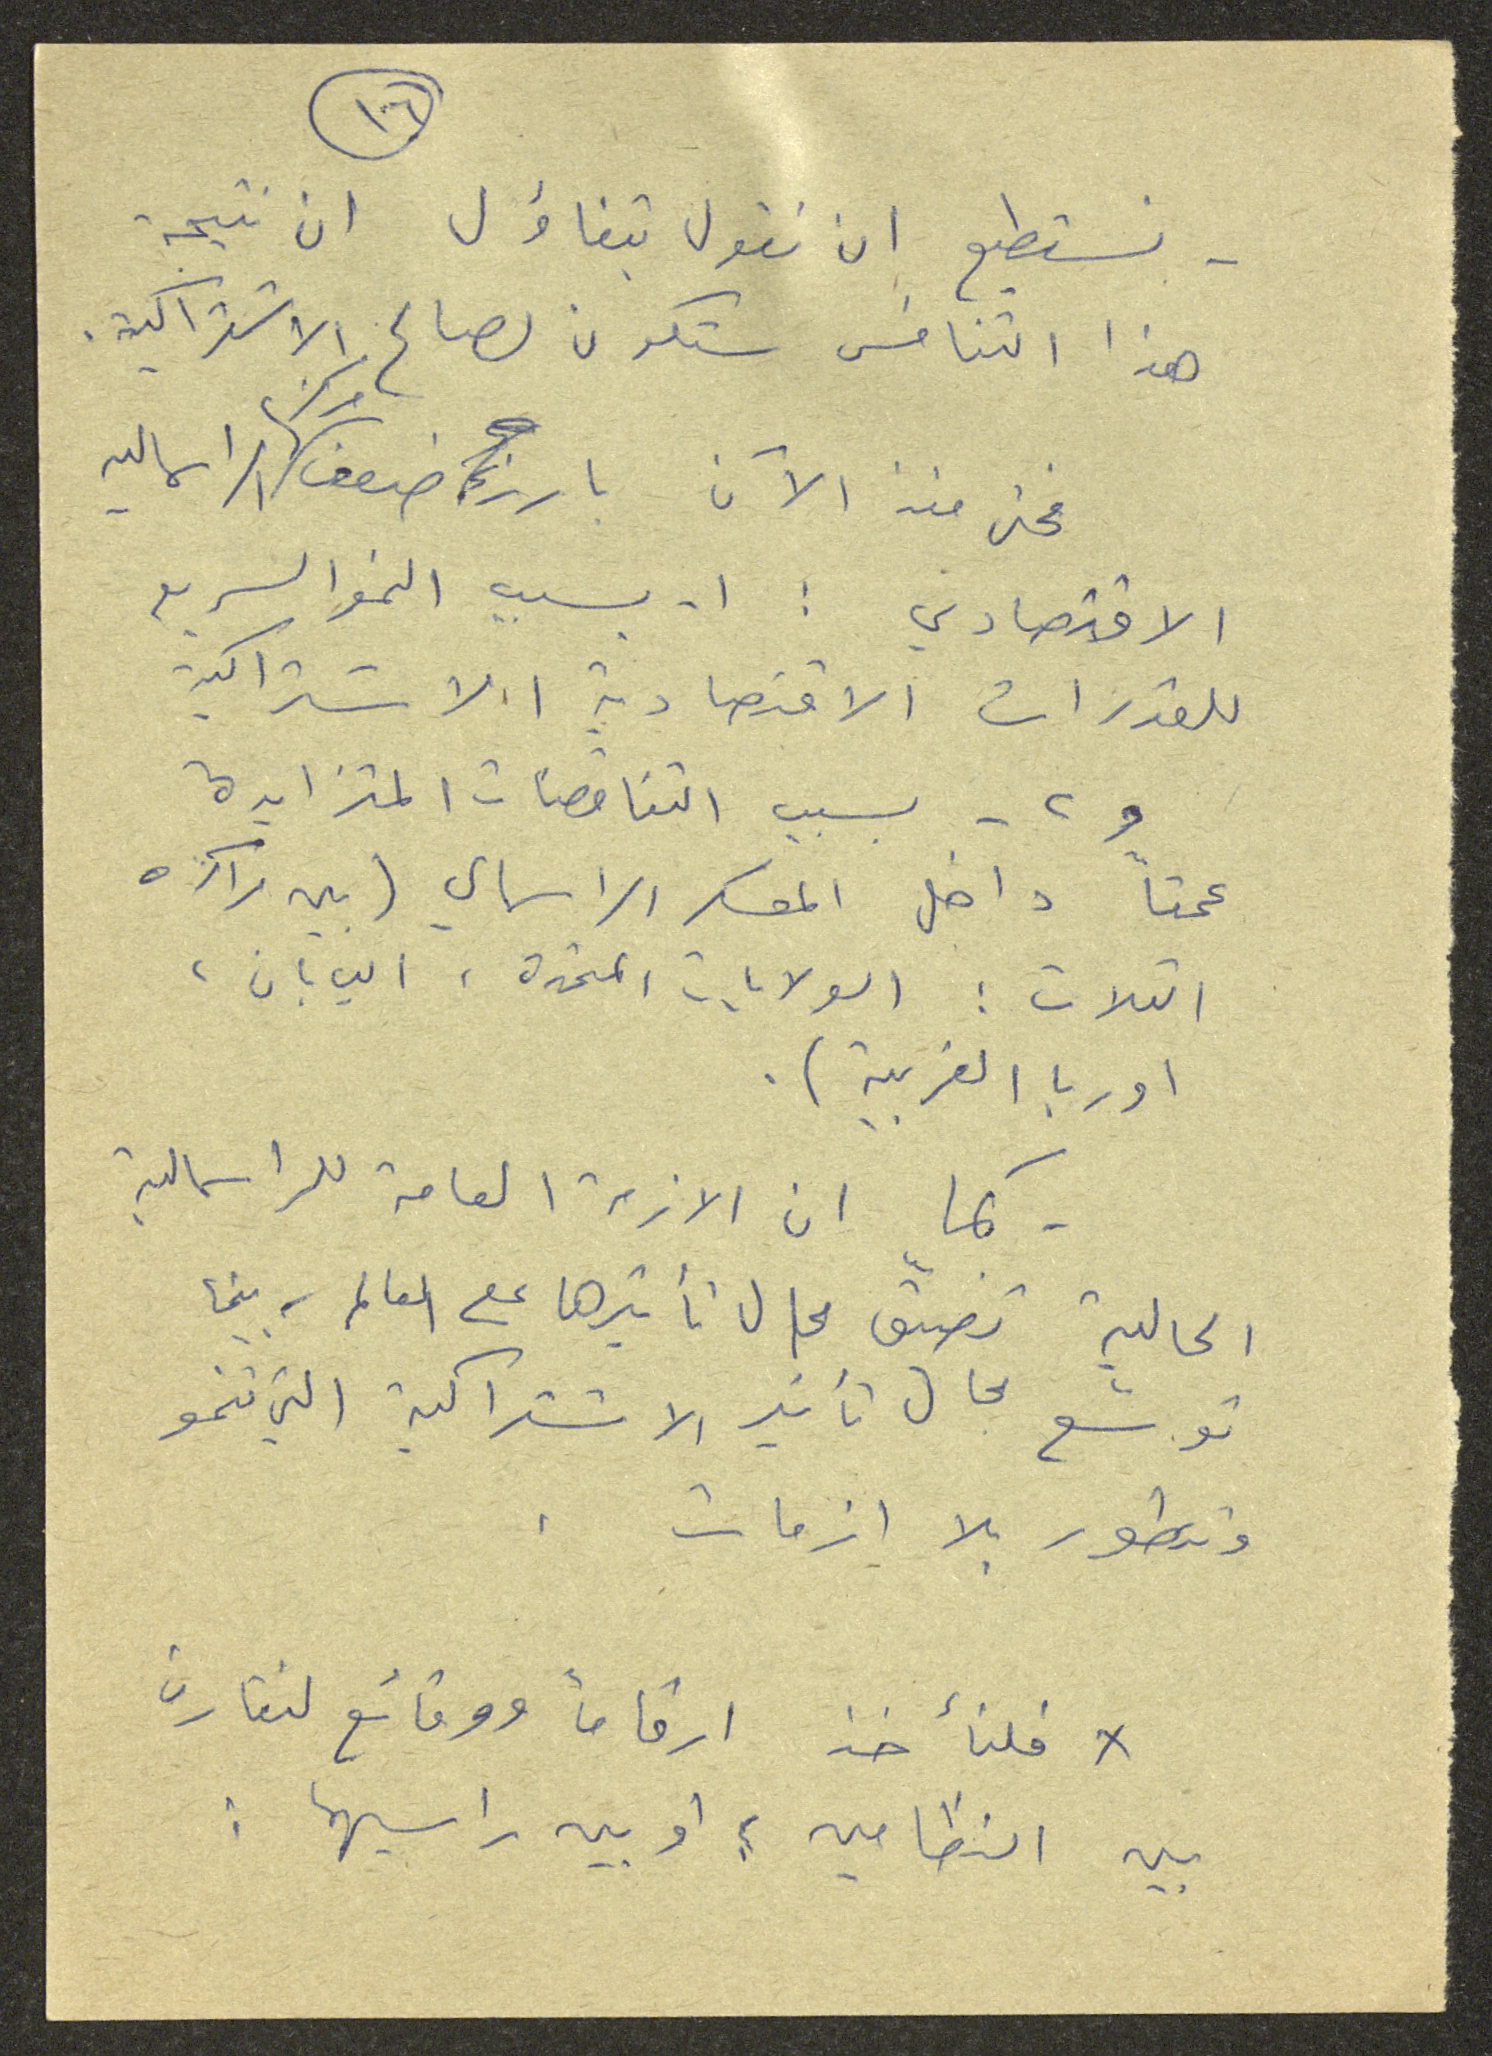 ١٦
- نستطيع ان نقول بتفاؤل ان نتيجة
هذا التنافس ستكون لصالح الاشتراكية.
فمنذ الآن بارز ضعف مركز الراسمالية
الاقتصادي : ١- بسبب النمو السريع
للقدرات الاقتصادية الاشتراكية
و ٢ - بسبب التناقضات المتزايدة
عمقاً داخل المعسكر الراسمالي (بين مراكزه
الثلاث : الولايات المتحدة ، اليابان ،
اوربا الغربية ) .
- كما ان الازمة العامة للراسمالية
الحالية تضيّق مجال تأثيرها على العالم ، بينما
توسّع مجال تأثير الاشتراكية التي تنمو
وتتطور بلا ازمات .
x فلنأخذ ارقاماً ووقائع لنقارن
بين النظامين ، او بين راسيهما :